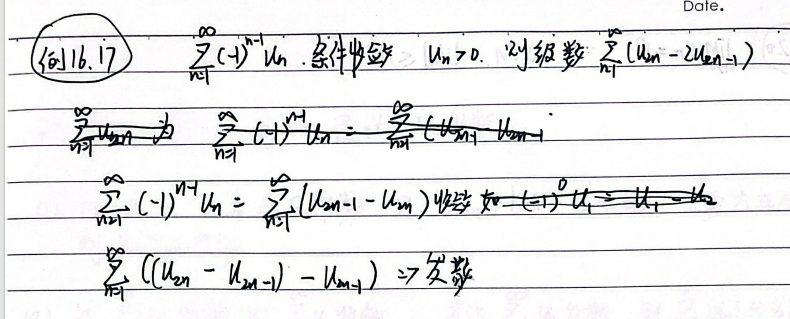 Date.
例16.17 $\sum_{n=1}^{\infty}(-1)^{n-1}U_n$ .条件收敛 $U_n>0$. 则级数 $\sum_{n=1}^{\infty}(U_{2n}-2U_{2n-1})$
$\sum_{n=1}^{\infty}U_{2n}$ 为 $\sum_{n=1}^{\infty}(-1)^{n-1}U_n=\sum_{n=1}^{\infty}(U_{2n-1}-U_{2n-1}$
$\sum_{n=1}^{\infty}(-1)^{n-1}U_n=\sum_{n=1}^{\infty}(U_{2n-1}-U_{2n})$收敛 如 $(-1)^0U_1=U_1-U_2$
$\sum_{n=1}^{\infty}((U_{2n}-U_{2n-1})-U_{2n-1})$ ⇒发散